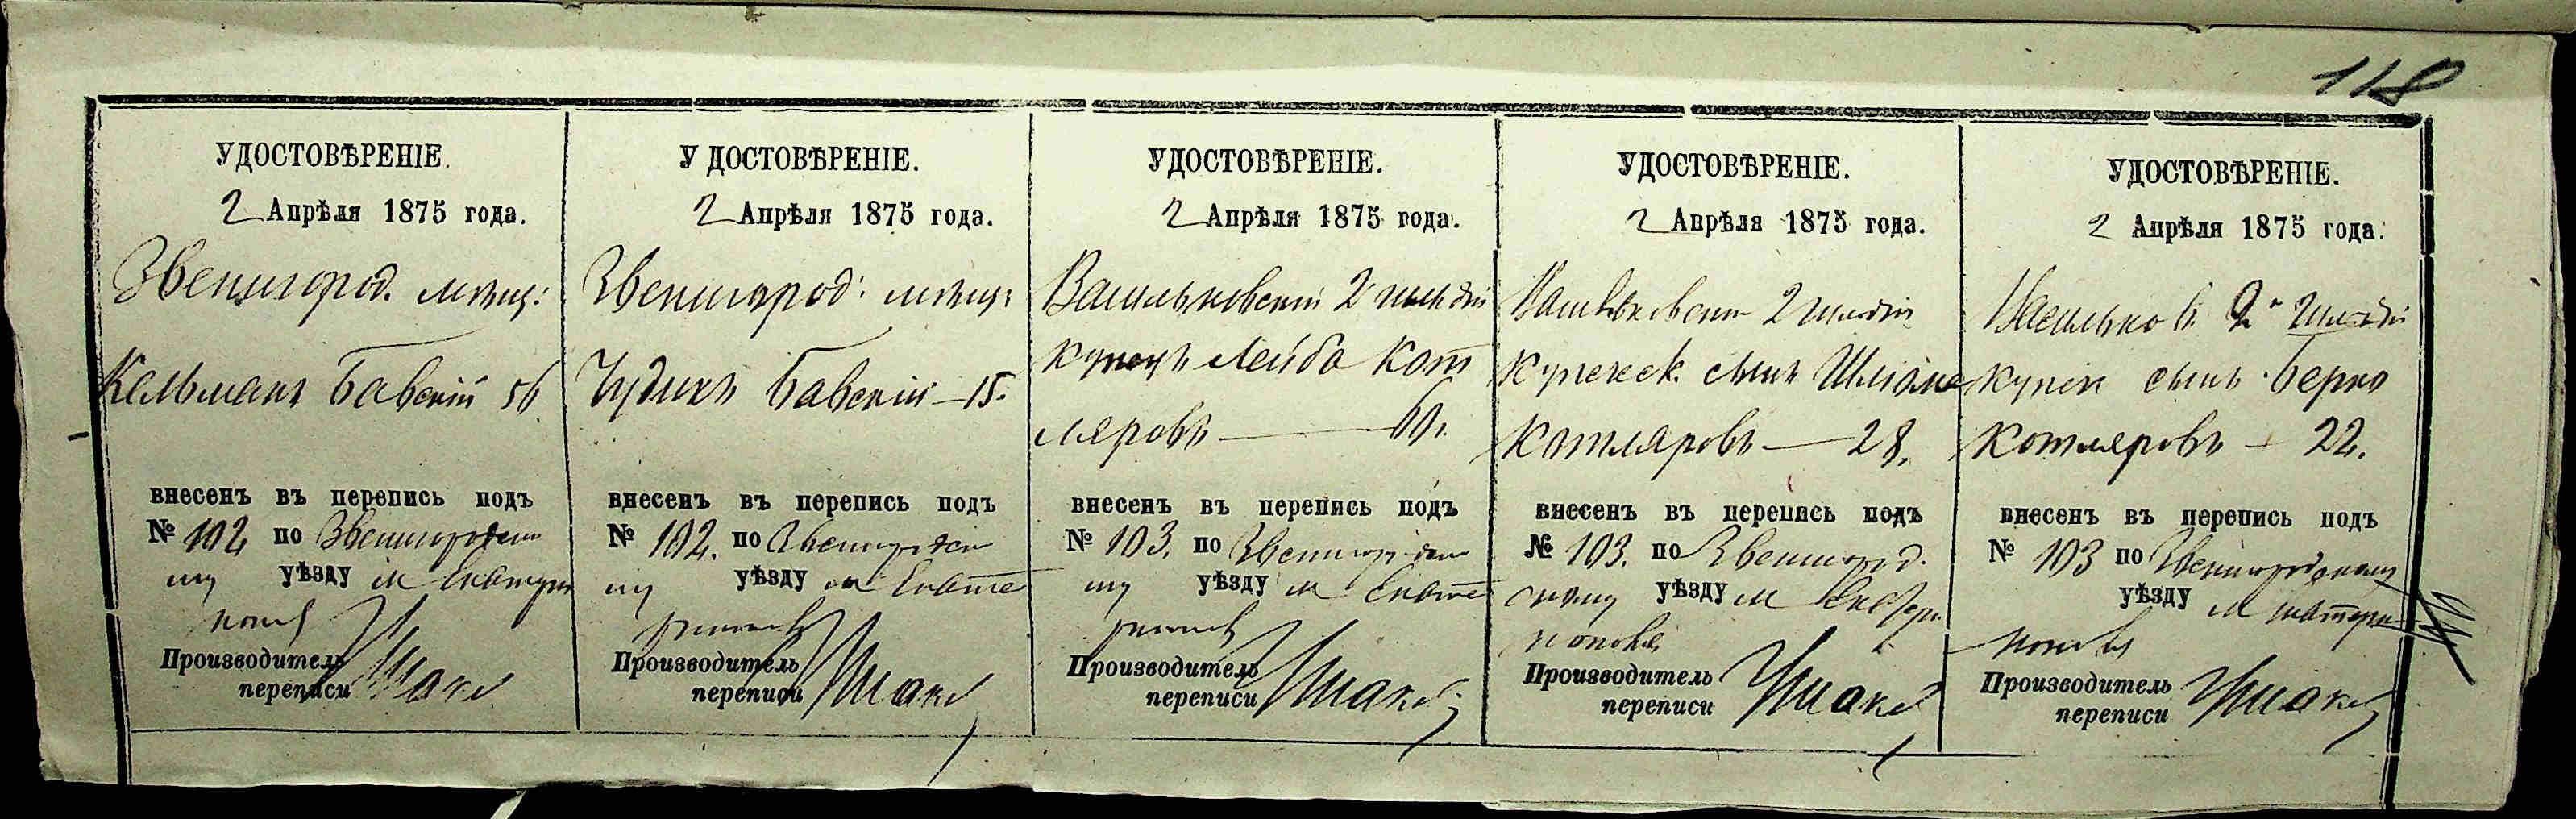 118
УДОСТОВѢРЕНІЕ.
2 Апрѣля 1875 года.
Звенигород. мѣщ:
Кельманъ Бавскій 56
внесенъ въ перепись подъ
№ 102 по Звенигородско
му уѣзду м Екатери
нопол
Производитель
переписи
У ДОСТОВѢРЕНІЕ.
2 Апрѣля 1875 года.
Звенигород: мѣщ:
Чудикъ Бавскій — 15.
внесенъ въ перепись подъ
№ 102. по Звенигородско
му уѣзду м Екате
Производитель
переписи
УДОСТОВѢРЕНІЕ.
2 Апрѣля 1875 года.
Васильковскій 2 гильдіи
купецъ Лейба Кот
ляровъ — 60.
внесенъ въ перепись подъ
№ 103. по Звенигородско
му уѣзду м Екате
Производитель
переписи
УДОСТОВѢРЕНІЕ.
2 Апрѣля 1875 года.
Васильковскій 2 гильдіи
купеческ. сынъ Шліома
Котляровъ — 28.
внесенъ въ перепись подъ
№ 103. по Звенигород.
скому уѣзду м Екатери
Производитель
переписи
УДОСТОВѢРЕНІЕ.
2 Апрѣля 1875 года.
Васильков. 2й гильдіи
купеч сынъ Берко
Котляровъ — 22.
внесенъ въ перепись подъ
№ 103 по Звенигородскому
уѣзду м Катери
Производитель
переписи